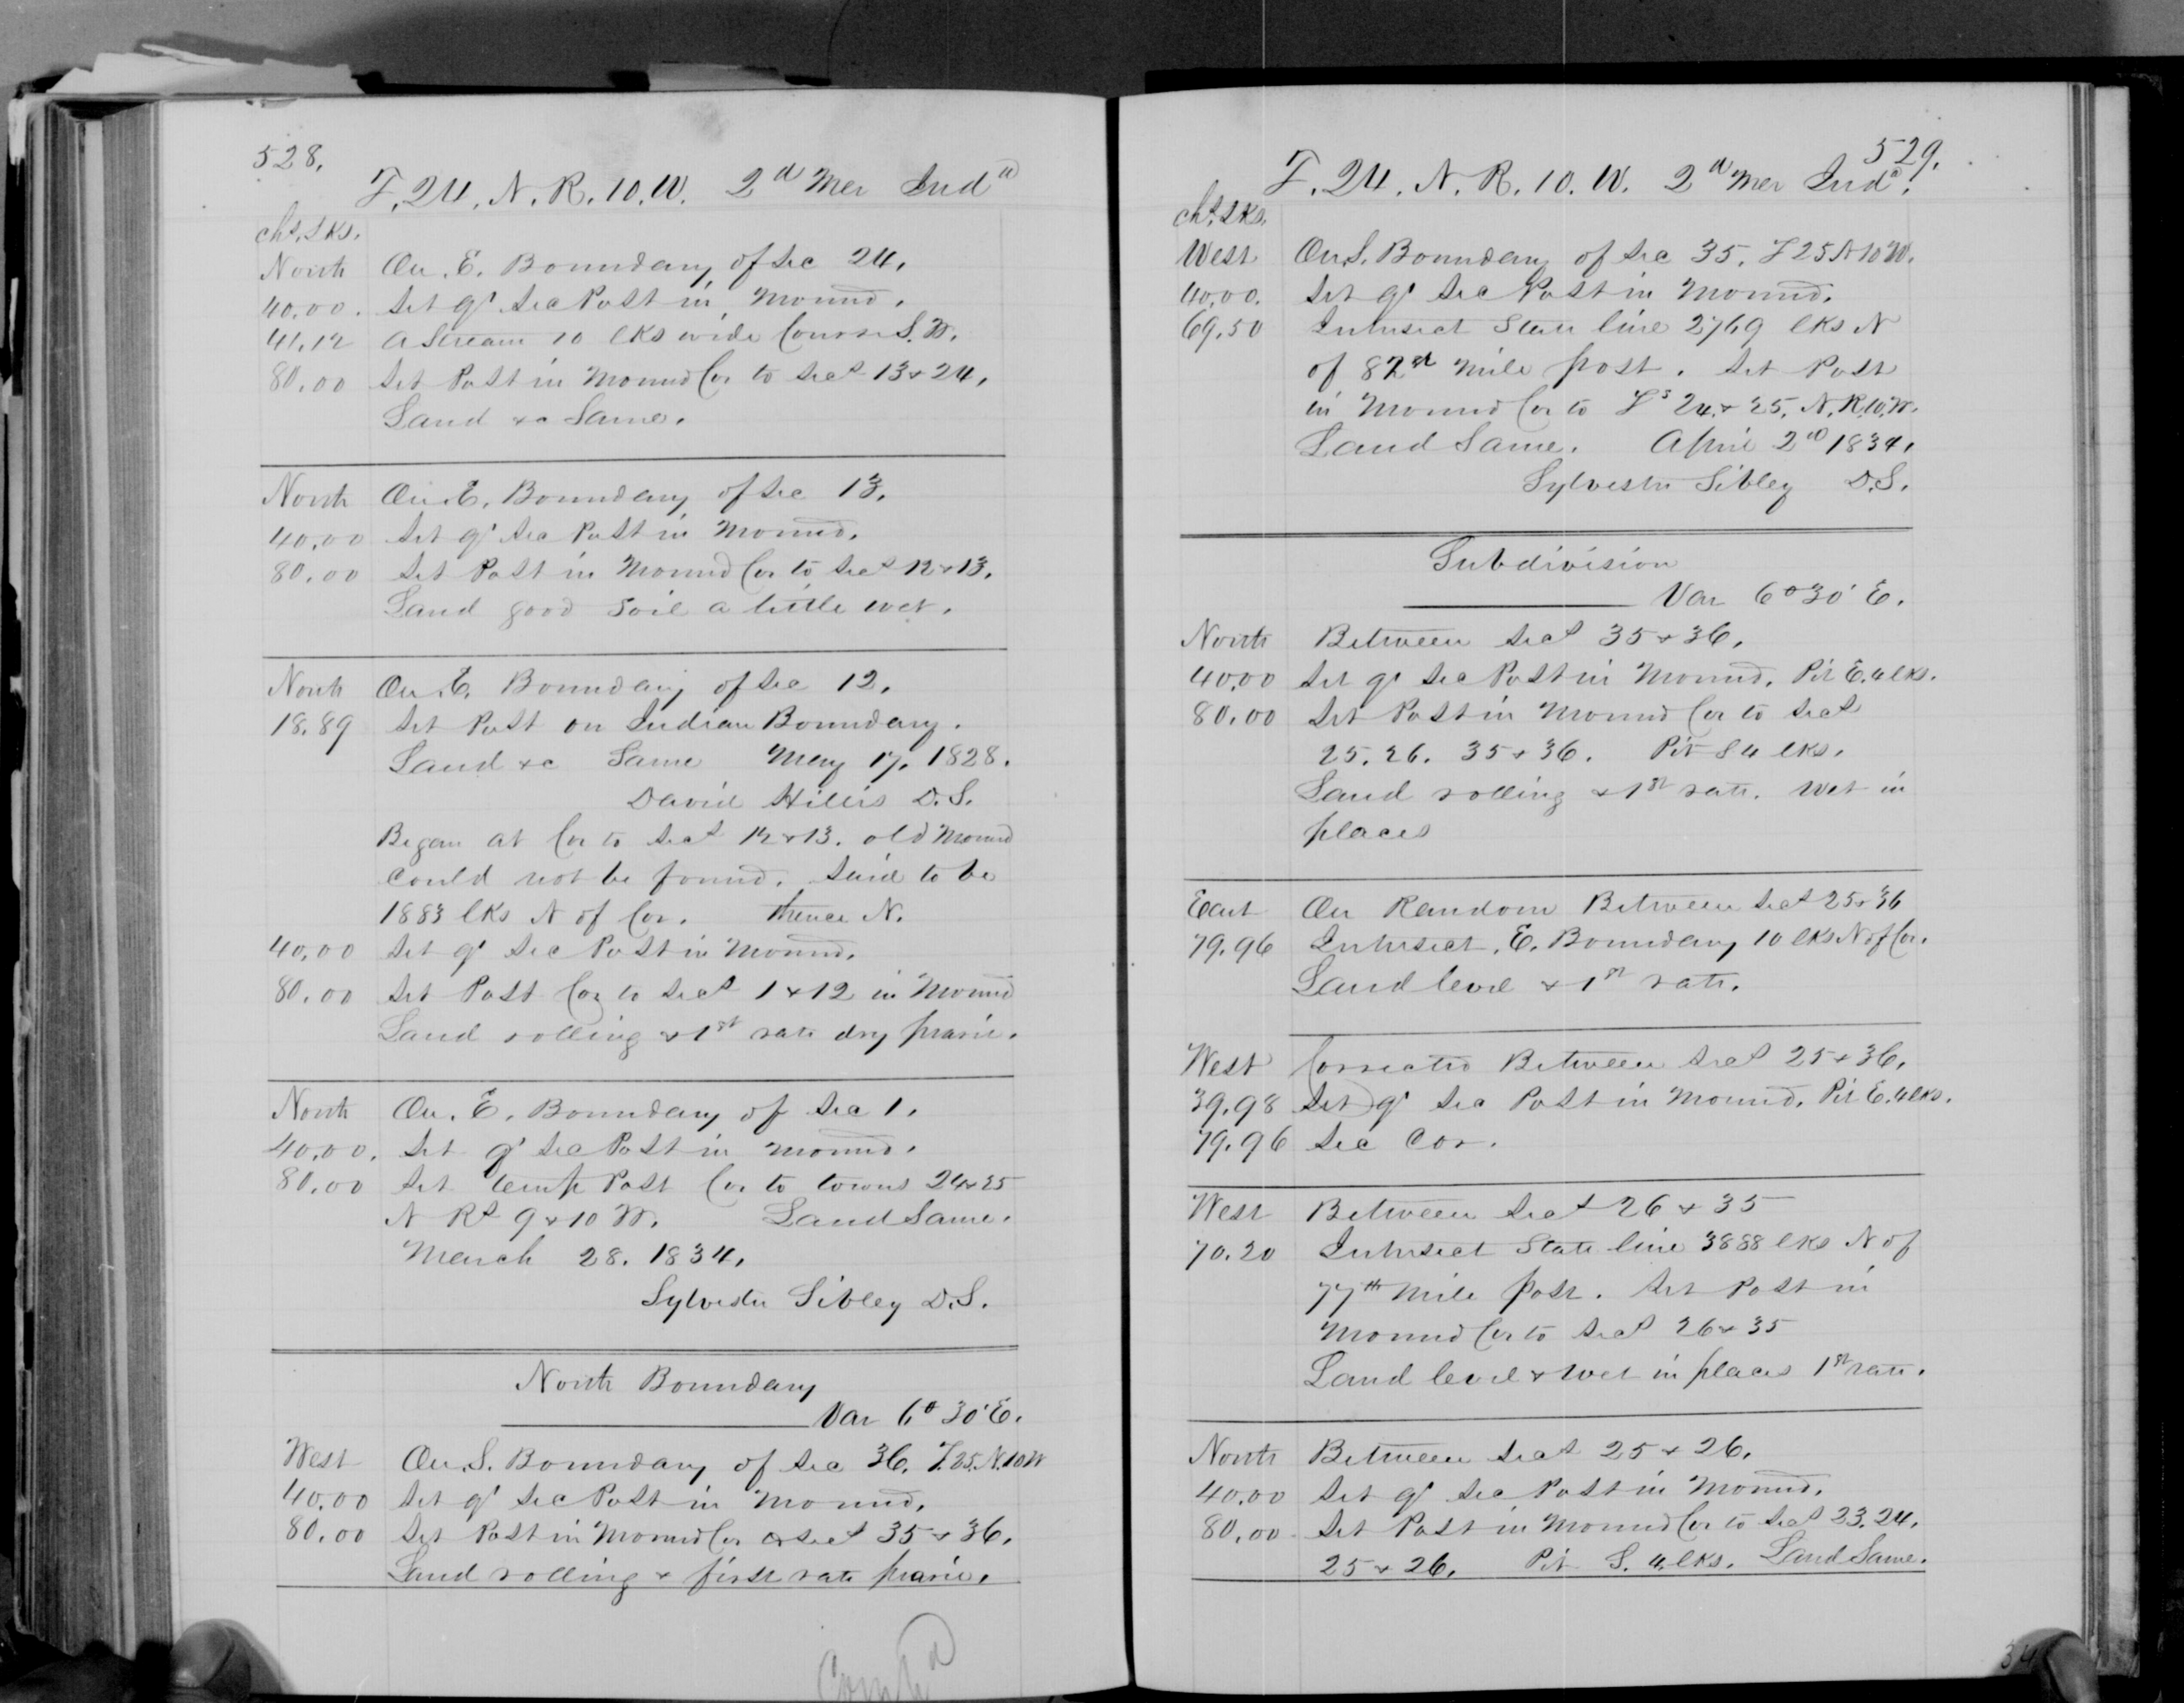 528.
T. 24. N. R. 10. W. 2d Mer Inda
chs. lks.
North On E. Boundary of Sec 24.
40.00. Set qr Sec Post in Mound.
41.12 A Stream 10 lks wide Course S.W.
80.00 Set Post in Mound Cor to Secs 13 & 24.
Land &c Same.
North On E. Boundary of Sec 13.
40.00 Set qr Sec Post in Mound.
80.00 Set Post in Mound Cor to Secs 12 & 13.
Land good soil a little wet.
North On E. Boundary of Sec 12.
18.89 Set Post on Indian Boundary.
Land &c Same May 17. 1828.
David Hillis D.S.
Began at Cor to Secs 12 & 13. old Mound
Could not be found. Said to be
1883 lks N of Cor. Thence N.
40.00 Set qr Sec Post in Mound.
80.00 Set Post Cor to Secs 1 & 12 in Mound
Land rolling & 1st rate dry prarie.
North On E. Boundary of Sec 1.
40.00. Set qr Sec Post in Mound.
80.00 Set temp Post Cor to towns 24 & 25
N Rs 9 & 10 W. Land Same.
March 28. 1834.
Sylvester Sibley D.S.
North Boundary
Var 6° 30' E.
West On S. Boundary of Sec 36. T.25.N.10W
40.00 Set qr Sec Post in Mound.
80.00 Set Post in Mound Cor to Secs 35 & 36.
Land rolling & first rate prarie.
Compd
529.
T. 24. N. R. 10. W. 2d Mer Inda.
chs. lks.
West On S. Boundary of Sec 35. T 25 N 10 W.
40.00. Set qr Sec Post in Mound.
69.50 Intersect State line 2769 lks N
of 82nd Mile post. Set Post
in Mound Cor to Ts 24 & 25. N. R. 10. W.
Land Same. April 2nd 1834.
Sylvester Sibley D.S.
Subdivision
Var 6° 30' E.
North Between Secs 35 & 36.
40.00 Set qr Sec Post in Mound. Pit E. 4 lks.
80.00 Set Post in Mound Cor to Secs
25. 26. 35 & 36. Pit S 4 lks.
Land rolling & 1st rate. Wet in
places
East On Random Between Secs 25 & 36
79.96 Intersect. E. Boundary 10 lks N of Cor.
Land level & 1st rate.
West Corrected Between Secs 25 & 36.
39.98 Set qr Sec Post in Mound. Pit E. 4 lks.
79.96 Sec Cor.
West Between Secs 26 & 35
70.20 Intersect State line 3888 lks N of
77th Mile post. Set Post in
Mound Cor to Secs 26 & 35
Land level & wet in places 1st rate.
North Between Secs 25 & 26.
40.00 Set qr Sec Post in Mound.
80.00 Set Post in Mound Cor to Secs 23. 24.
25 & 26. Pit S. 4 lks. Land Same.
34